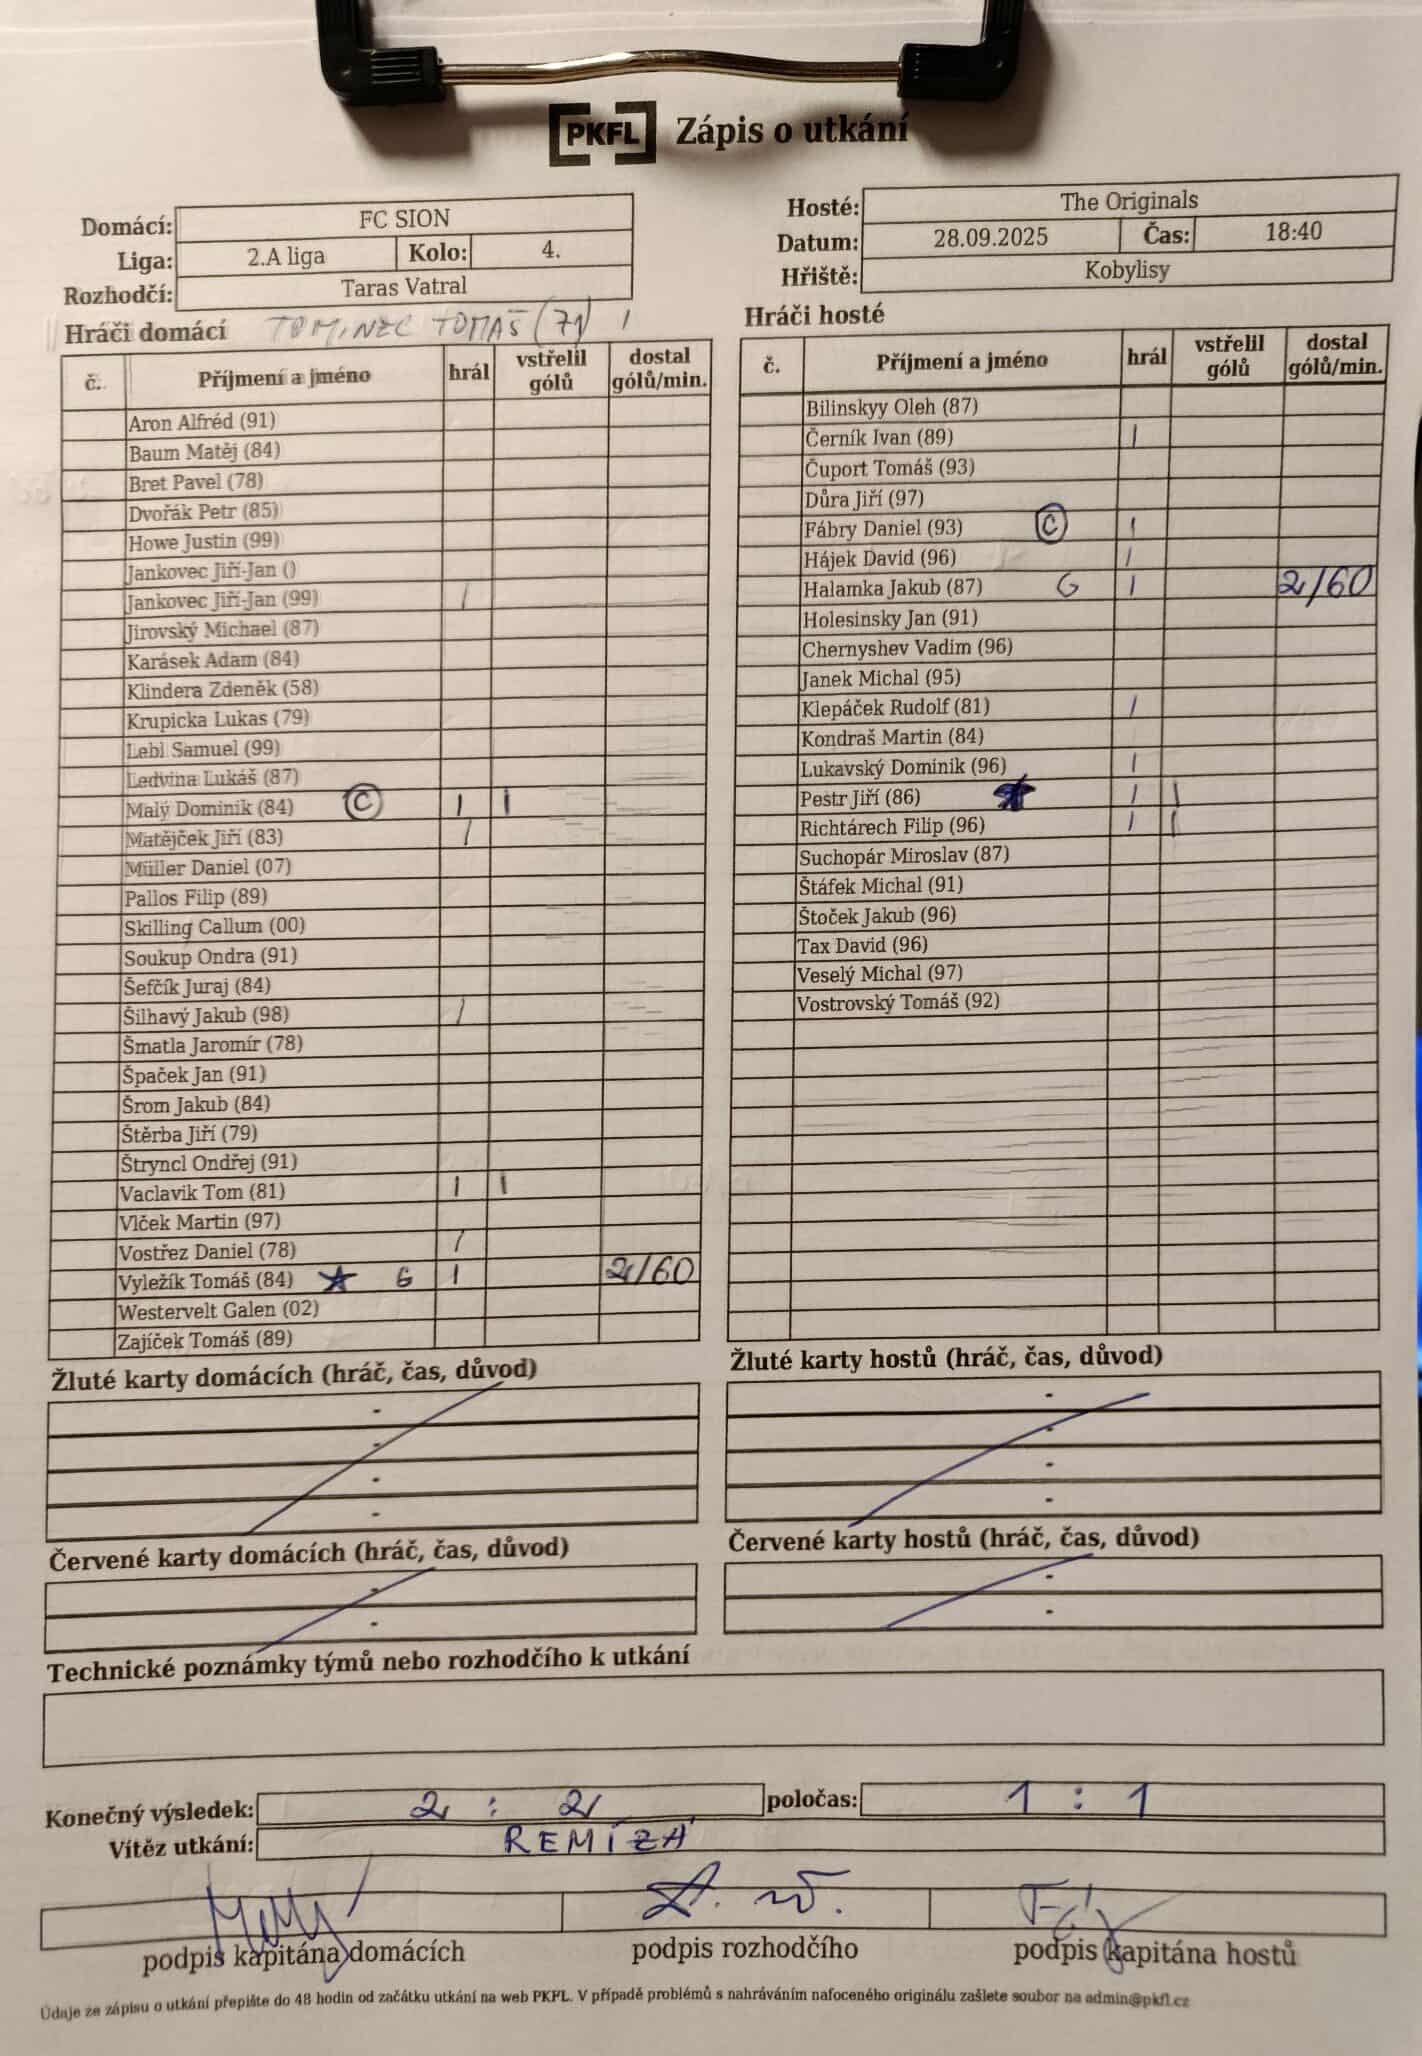 PKFL Zápis o utkání
Domácí: FC SION
Liga: 2.A liga Kolo: 4.
Rozhodčí: Taras Vatral
Hosté: The Originals
Datum: 28.09.2025 Čas: 18:40
Hřiště: Kobylisy
Hráči domácí TOMINEC TOMÁŠ (71) 1
č. Příjmení a jméno hrál vstřelil gólů dostal gólů/min.
Aron Alfréd (91)
Baum Matěj (84)
Bret Pavel (78)
Dvořák Petr (85)
Howe Justin (99)
Jankovec Jiří-Jan ()
Jankovec Jiří-Jan (99) 1
Jirovský Michael (87)
Karásek Adam (84)
Klindera Zdeněk (58)
Krupicka Lukas (79)
Lebl Samuel (99)
Ledvina Lukáš (87)
Malý Dominik (84) C 1 1
Matějček Jiří (83) 1
Müller Daniel (07)
Pallos Filip (89)
Skilling Callum (00)
Soukup Ondra (91)
Šefčík Juraj (84)
Šilhavý Jakub (98) 1
Šmatla Jaromír (78)
Špaček Jan (91)
Šrom Jakub (84)
Štěrba Jiří (79)
Štryncl Ondřej (91)
Vaclavik Tom (81) 1 1
Vlček Martin (97)
Vostřez Daniel (78) 1
Vyležík Tomáš (84) ★ G 1 2/60
Westervelt Galen (02)
Zajíček Tomáš (89)
Hráči hosté
č. Příjmení a jméno hrál vstřelil gólů dostal gólů/min.
Bilinskyy Oleh (87)
Černík Ivan (89) 1
Čuport Tomáš (93)
Důra Jiří (97)
Fábry Daniel (93) C 1
Hájek David (96) 1
Halamka Jakub (87) G 1 2/60
Holesinsky Jan (91)
Chernyshev Vadim (96)
Janek Michal (95)
Klepáček Rudolf (81) 1
Kondraš Martin (84)
Lukavský Dominik (96) 1
Pestr Jiří (86) ★ 1 1
Richtárech Filip (96) 1 1
Suchopár Miroslav (87)
Štáfek Michal (91)
Štoček Jakub (96)
Tax David (96)
Veselý Michal (97)
Vostrovský Tomáš (92)
Žluté karty domácích (hráč, čas, důvod)
-
-
-
-
Žluté karty hostů (hráč, čas, důvod)
-
-
-
-
Červené karty domácích (hráč, čas, důvod)
-
-
Červené karty hostů (hráč, čas, důvod)
-
-
Technické poznámky týmů nebo rozhodčího k utkání
Konečný výsledek: 2 : 2 poločas: 1 : 1
Vítěz utkání: REMÍZA
podpis kapitána domácích podpis rozhodčího podpis kapitána hostů
Údaje ze zápisu o utkání přepište do 48 hodin od začátku utkání na web PKFL. V případě problémů s nahráváním nafoceného originálu zašlete soubor na admin@pkfl.cz